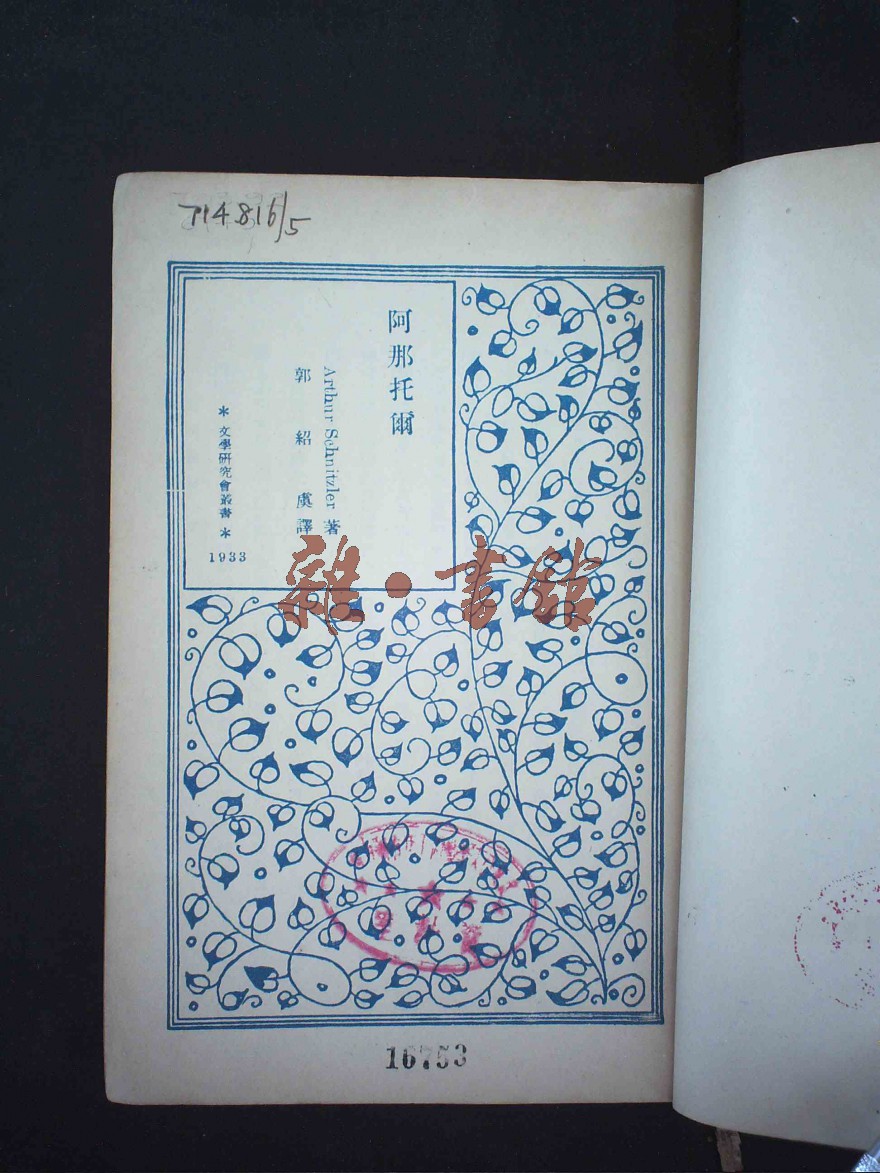 714.816/5
阿那托爾
Arthur Schnitzler 著
郭紹虞譯
* 文學研究會叢書 *
1933
雜·書館
16753